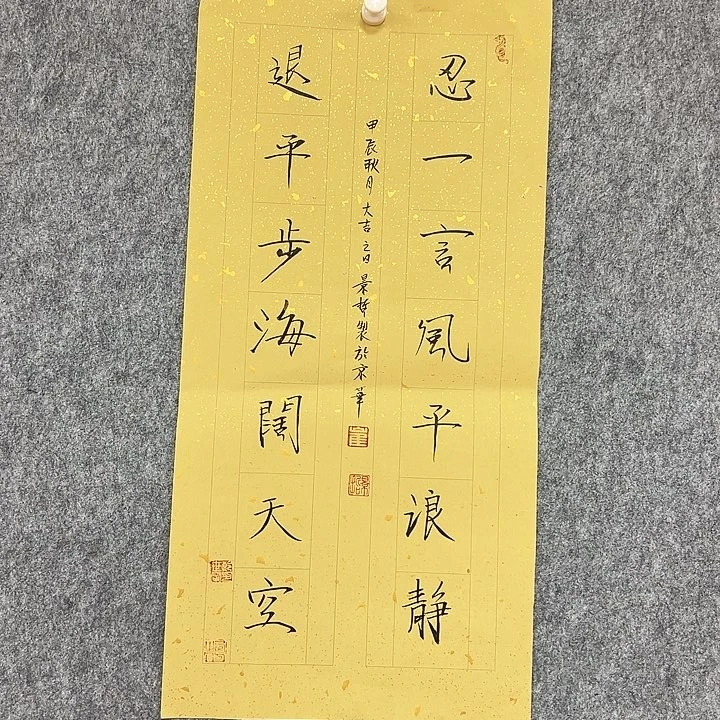 忍一言風平浪静
甲辰秋月大吉之日景哲製於京華
退平步海闊天空